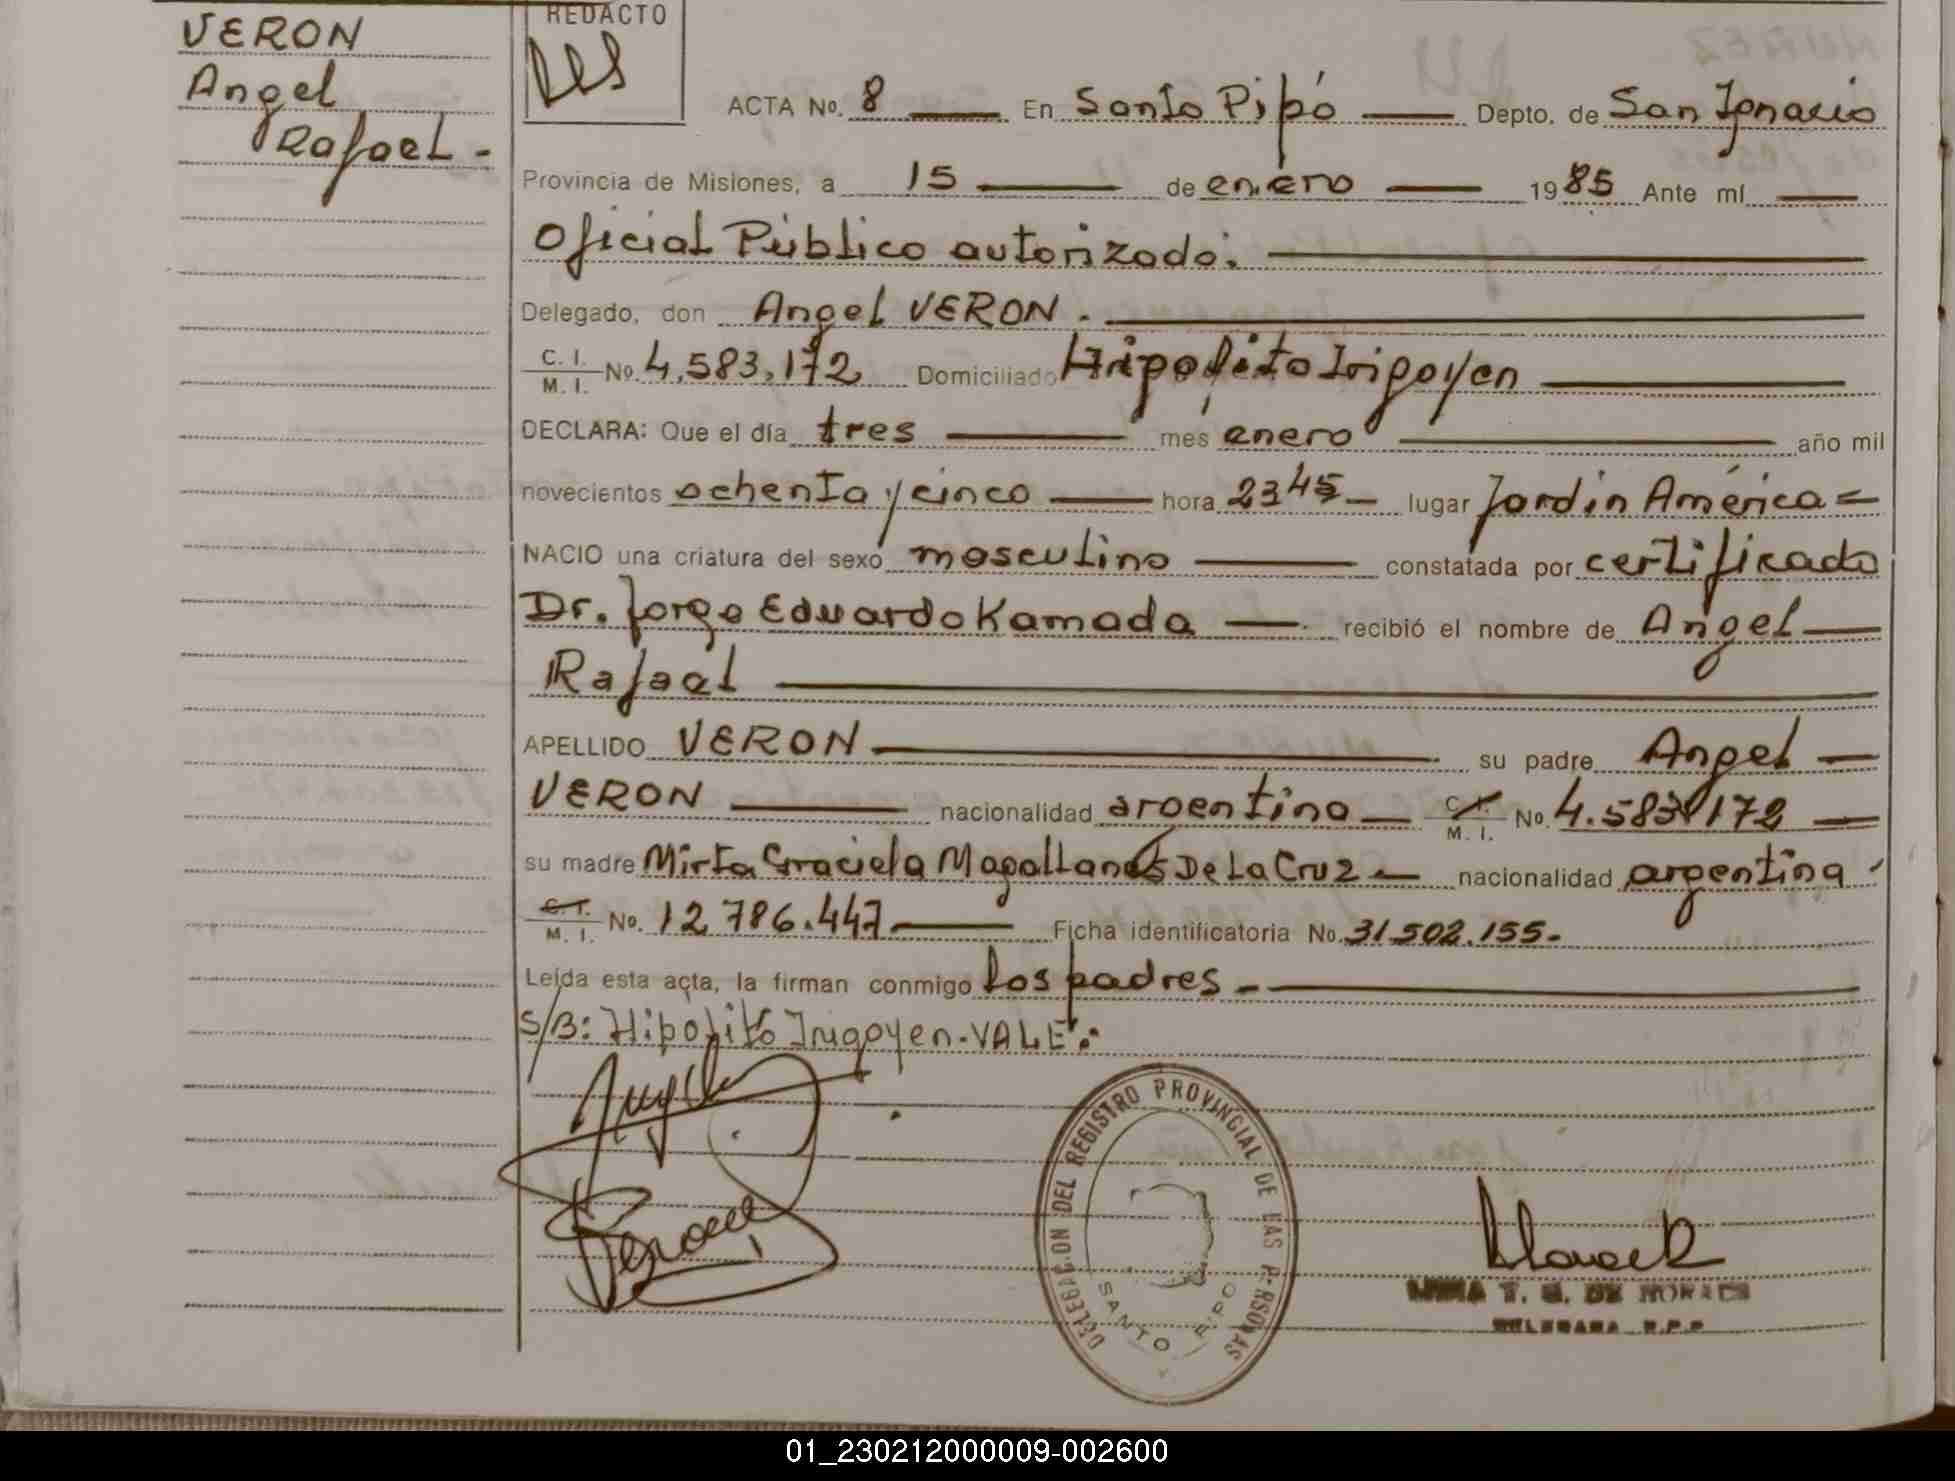 VERON
Angel
Rafael -
REDACTO
ACTA No. 8 En Santo Pipó Depto. de San Ignacio
Provincia de Misiones, a 15 de enero 1985 Ante mí
Oficial Público autorizado:
Delegado, don Angel VERON.
C. I. M. I. No. 4.583.172 Domiciliado Hipolito Irigoyen
DECLARA: Que el día tres mes enero año mil
novecientos ochenta y cinco hora 23 45 lugar Jardin América =
NACIO una criatura del sexo masculino constatada por certificado
Dr. Jorge Eduardo Kamada recibió el nombre de Angel
Rafael
APELLIDO VERON su padre Angel
VERON nacionalidad argentino C. I. M. I. No. 4.583.172
su madre Mirta Graciela Magallanes De La Cruz nacionalidad argentina
C. I. M. I. No. 12.786.447 Ficha identificatoria No. 31.502.155.-
Leída esta acta, la firman conmigo los padres
S/B: Hipolito Irigoyen. VALE.:
DELEGACION DEL REGISTRO PROVINCIAL DE LAS PERSONAS
SANTO PIPO
T. G. DE MORAES
DELEGADA R.P.P.
01_230212000009-002600